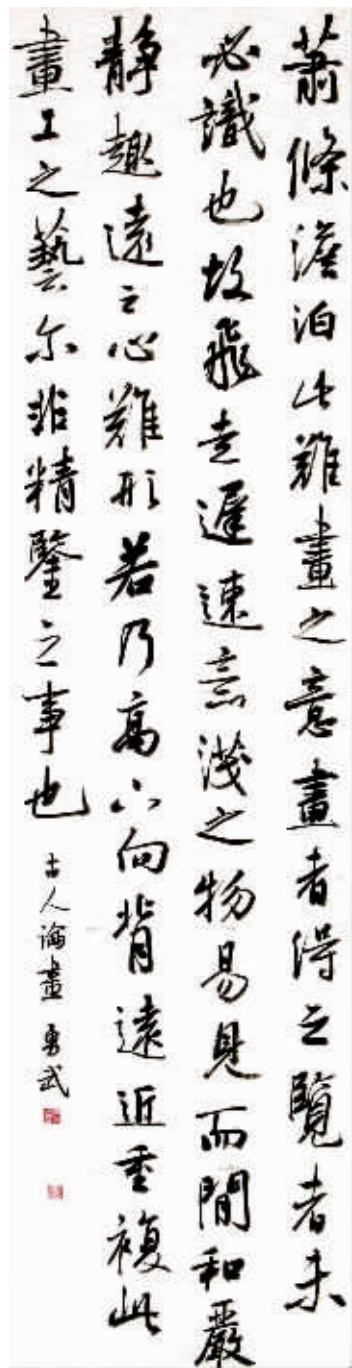 蕭條澹泊此難畫之意畫者得之覽者未
必識也故飛走遲速意淺之物易見而閒和嚴
靜趣遠之心難形若乃高下向背遠近重複此
畫工之藝尔非精鑒之事也
古人論畫 勇武